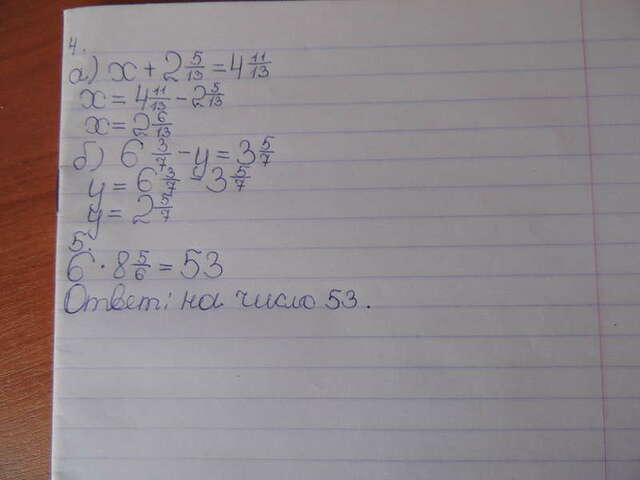 4.
а) x + 2 5/13 = 4 11/13
x = 4 11/13 - 2 5/13
x = 2 6/13
б) 6 3/7 - y = 3 5/7
y = 6 3/7 - 3 5/7
y = 2 5/7
5.
6 · 8 5/6 = 53
Ответ: на число 53.